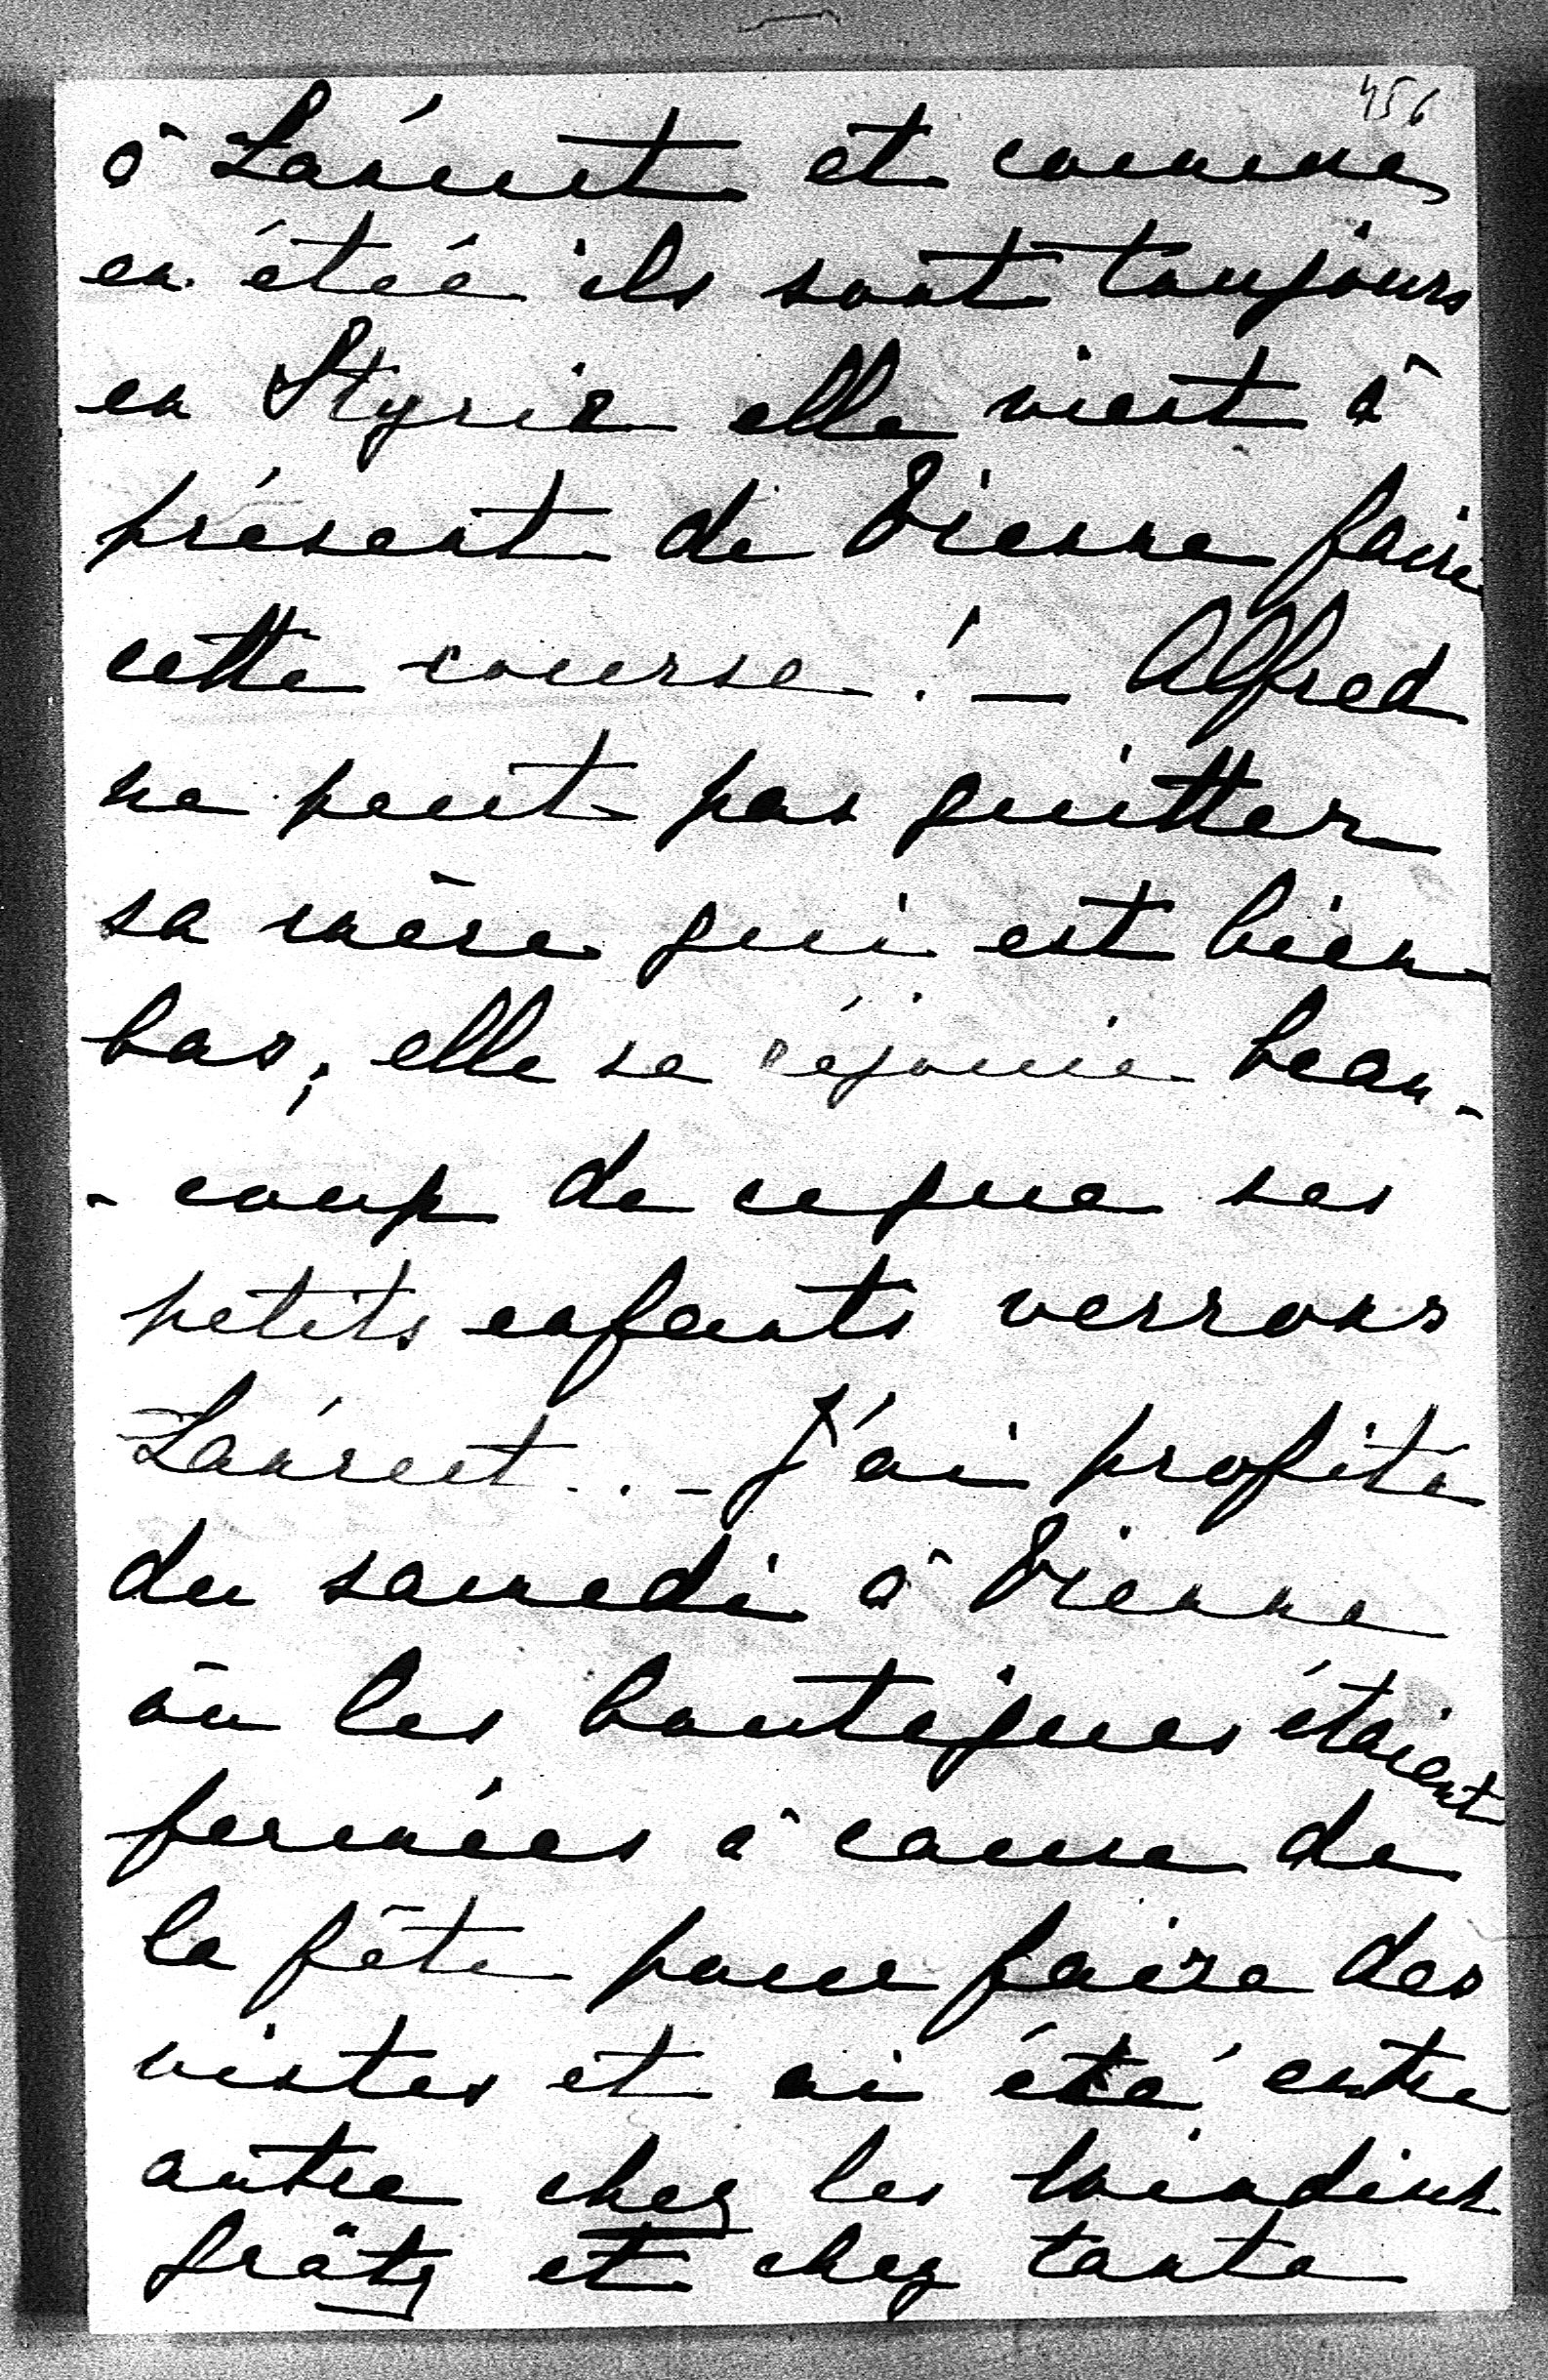 456
à Láncut et comme
en étée ils sont toujours
en Styrie elle vient à
présent de Vienne faire
cette course! — Alfred
ne peut pas quitter
sa mère qui est bien
bas, elle se réjouie beau-
-coup de ce que ses
petits enfants verrons
Láncut... - J'ai profité
du samedi à Vienne
où les boutiques étaient
fermées à cause de
la fête pour faire des
vistes et ai été entre
autre chez les Windisch
grätz et chez tante